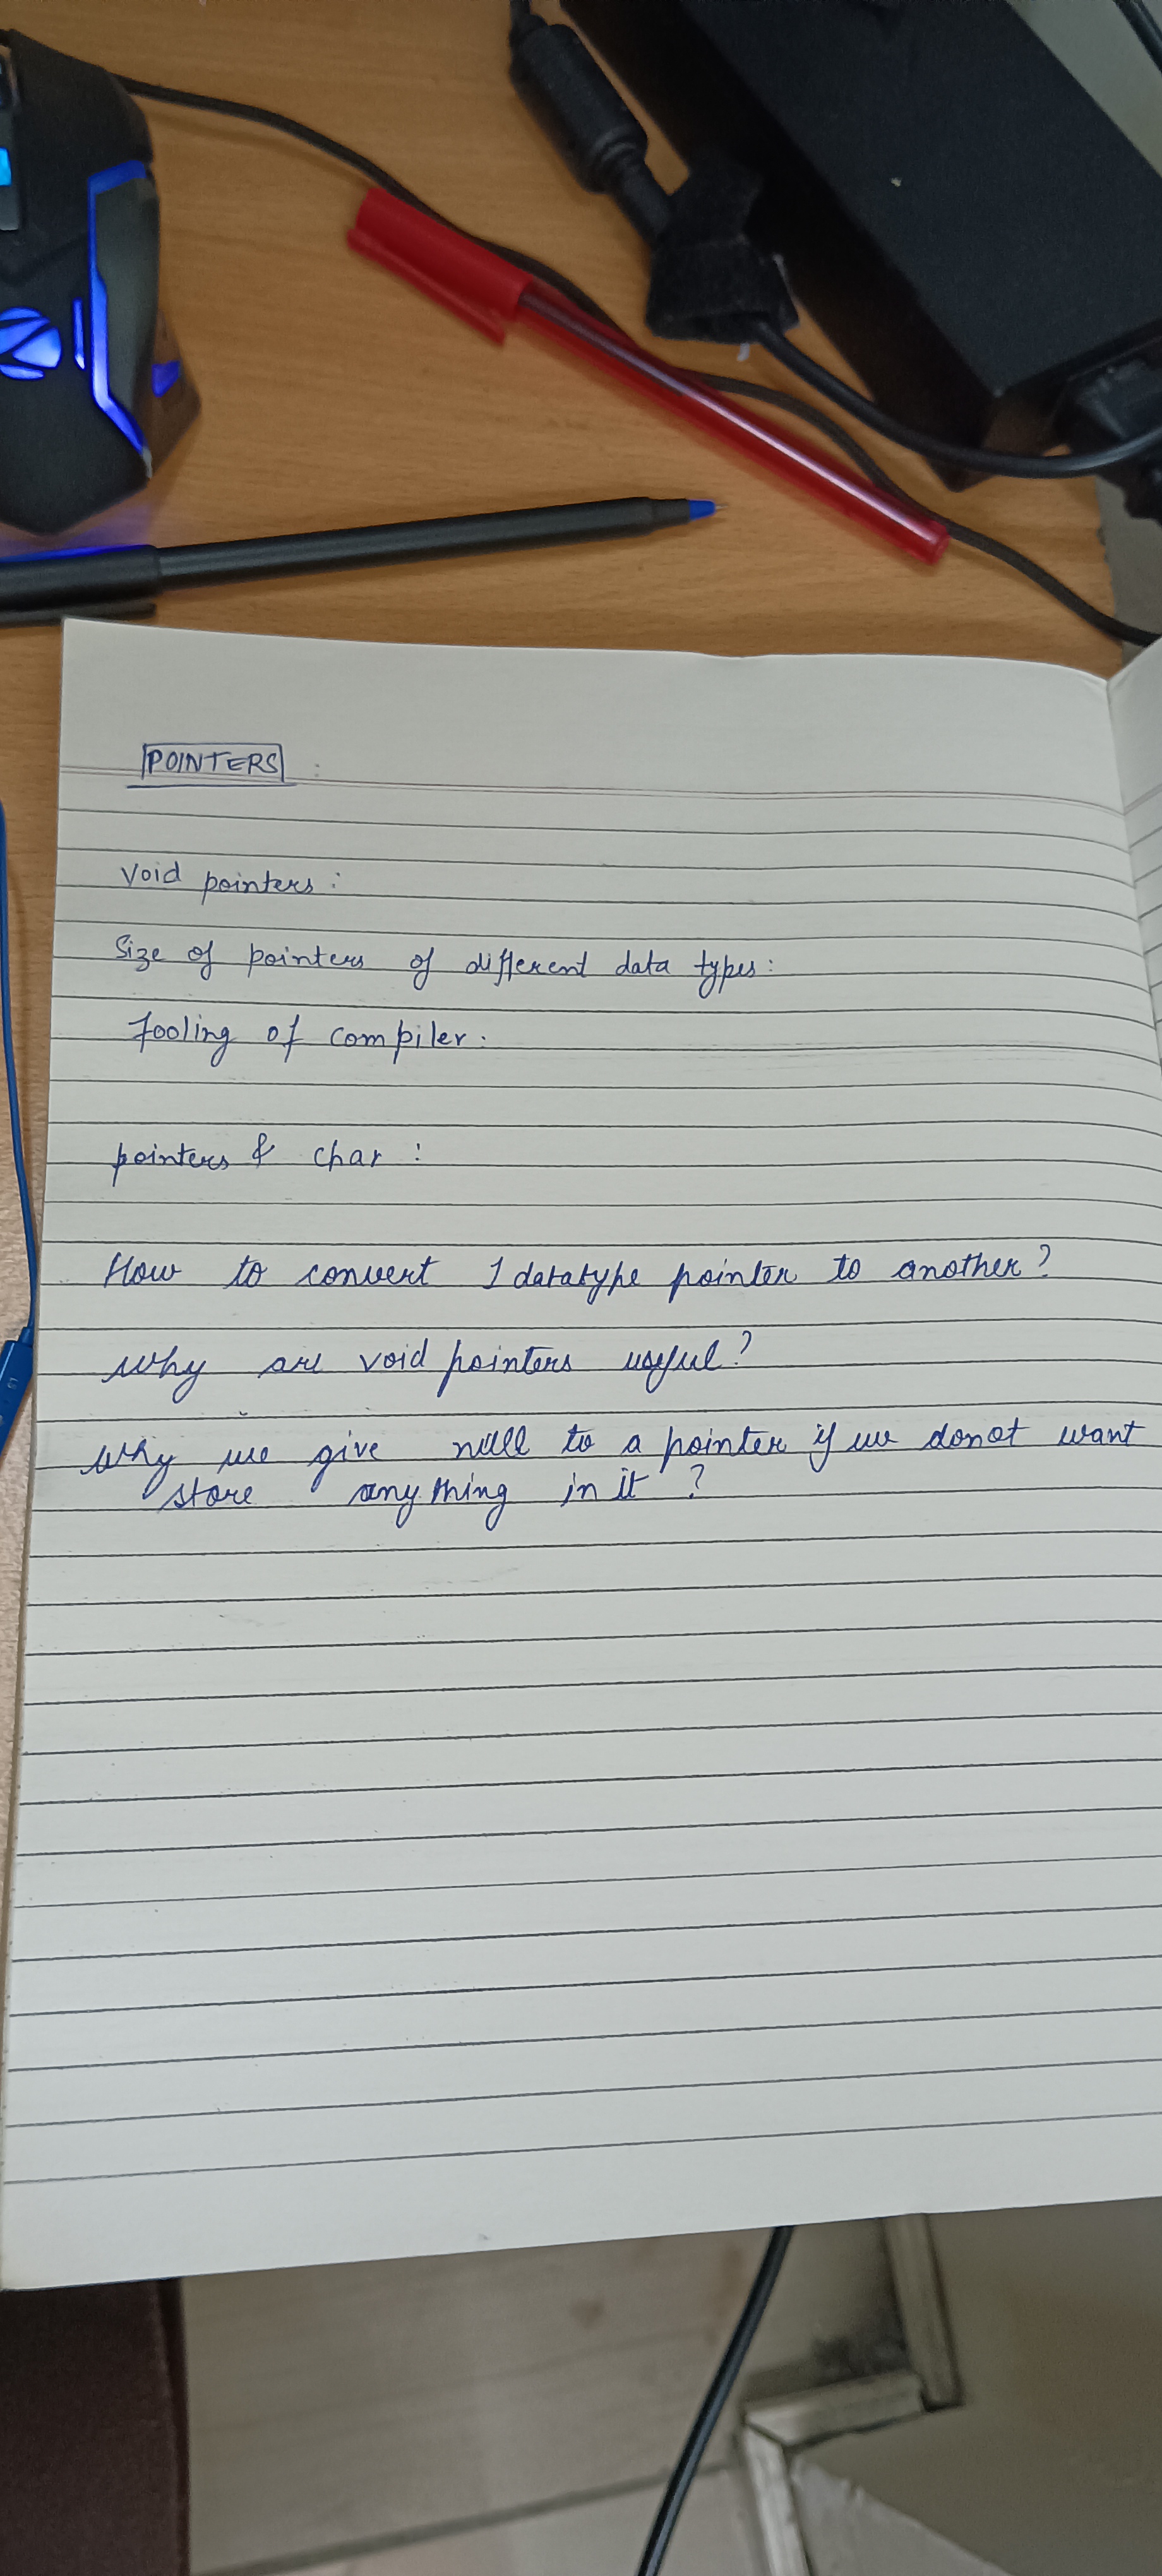 POINTERS :
Void pointers :
Size of pointers of different data types :
Fooling of compiler.
pointers & char :
How to convert 1 datatype pointer to another?
Why are void pointers useful?
Why we give null to a pointer if we donot want
store anything in it ?